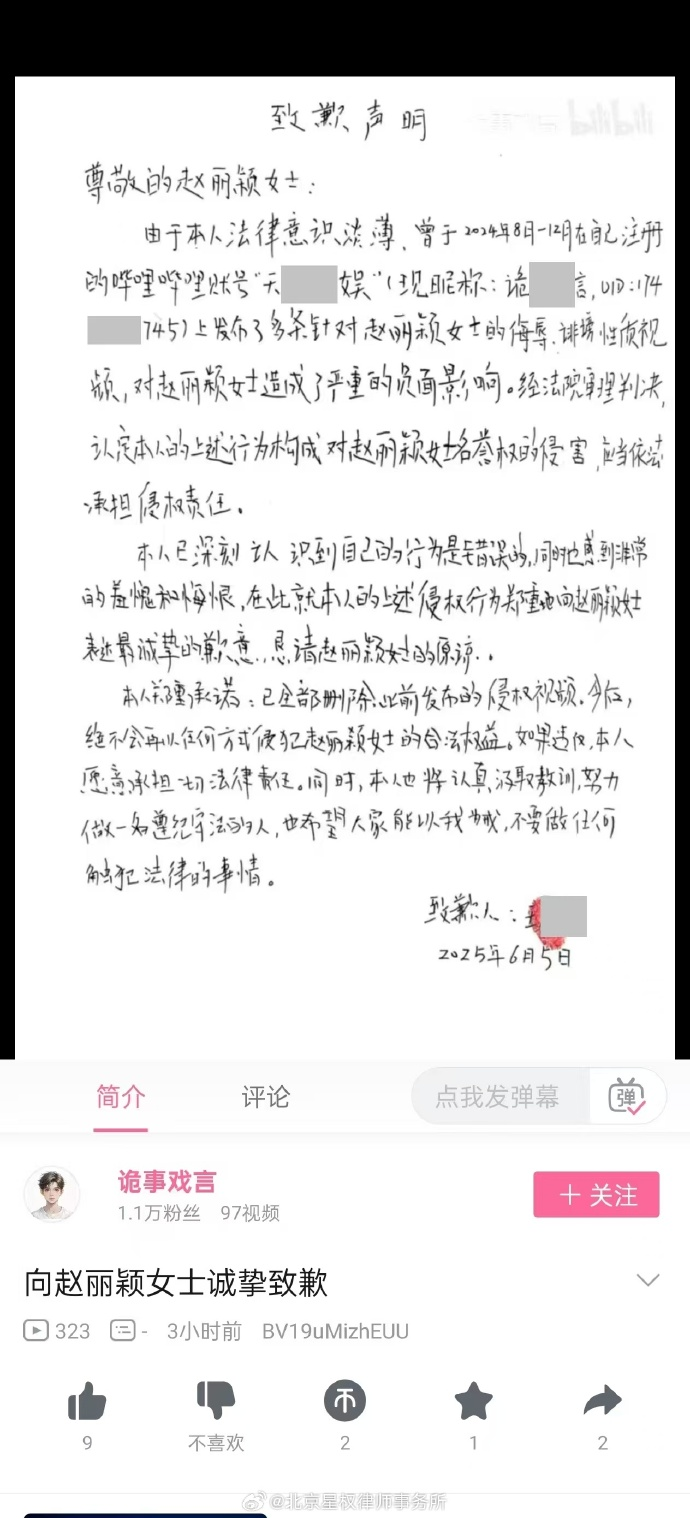 致歉声明
bilibili
尊敬的赵丽颖女士：
由于本人法律意识淡薄、曾于2024年8月-12月在自己注册
的哔哩哔哩账号“天 娱”（现昵称：诡 言，UID：174
745）上发布了多条针对赵丽颖女士的侮辱、诽谤性质视
频，对赵丽颖女士造成了严重的负面影响。经法院审理判决，
认定本人的上述行为构成对赵丽颖女士名誉权的侵害，应当依法
承担侵权责任。
本人已深刻认识到自己的行为是错误的，同时也感到非常
的羞愧和悔恨，在此就本人的上述侵权行为郑重地向赵丽颖女士
表达最诚挚的歉意，恳请赵丽颖女士的原谅。
本人郑重承诺：已全部删除此前发布的侵权视频。今后，
绝不会再以任何方式侵犯赵丽颖女士的合法权益。如果违反，本人
愿意承担一切法律责任。同时，本人也将认真汲取教训，努力
做一名遵纪守法的人，也希望大家能以我为戒，不要做任何
触犯法律的事情。
致歉人：
2025年6月5日
简介 评论 点我发弹幕 弹
诡事戏言
1.1万粉丝 97视频
＋ 关注
向赵丽颖女士诚挚致歉
323 - 3小时前 BV19uMizhEUU
9 不喜欢 2 1 2
@北京星权律师事务所